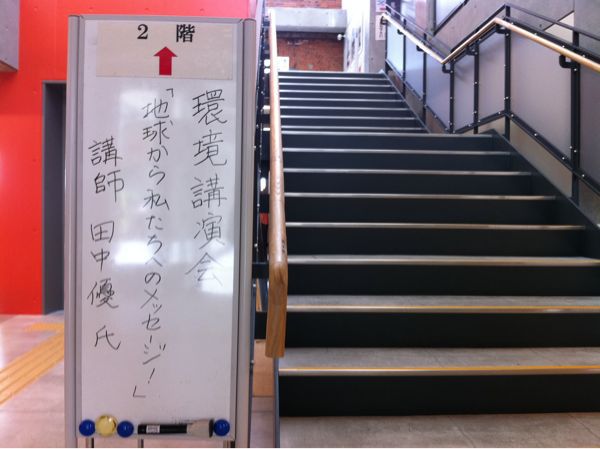 2 階
環境講演会
「地球から私たちへのメッセージ！」
講師 田中優 氏